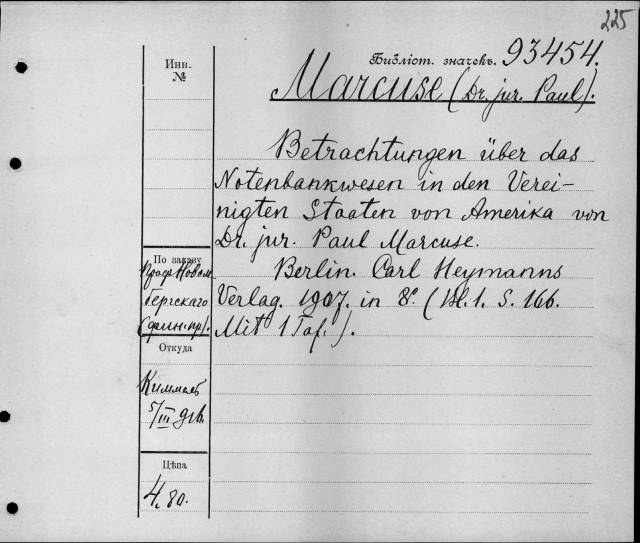 225
Библіот. значекъ. 93454.
Инв.
№
Marcuse (Dr. jur. Paul).
Betrachtungen über das
Notenbankwesen in den Verei-
nigten Staaten von Amerika von
Dr. jur. Paul Marcuse.
Berlin. Carl Heymanns
Verlag. 1907. in 8º (Bl. 1. S. 166.
Mit 1 Taf.).
По заказу
Проф. Новом
бергскаго
(фин. пр).
Откуда
Киммель
5/III
Цѣна
4. 80.